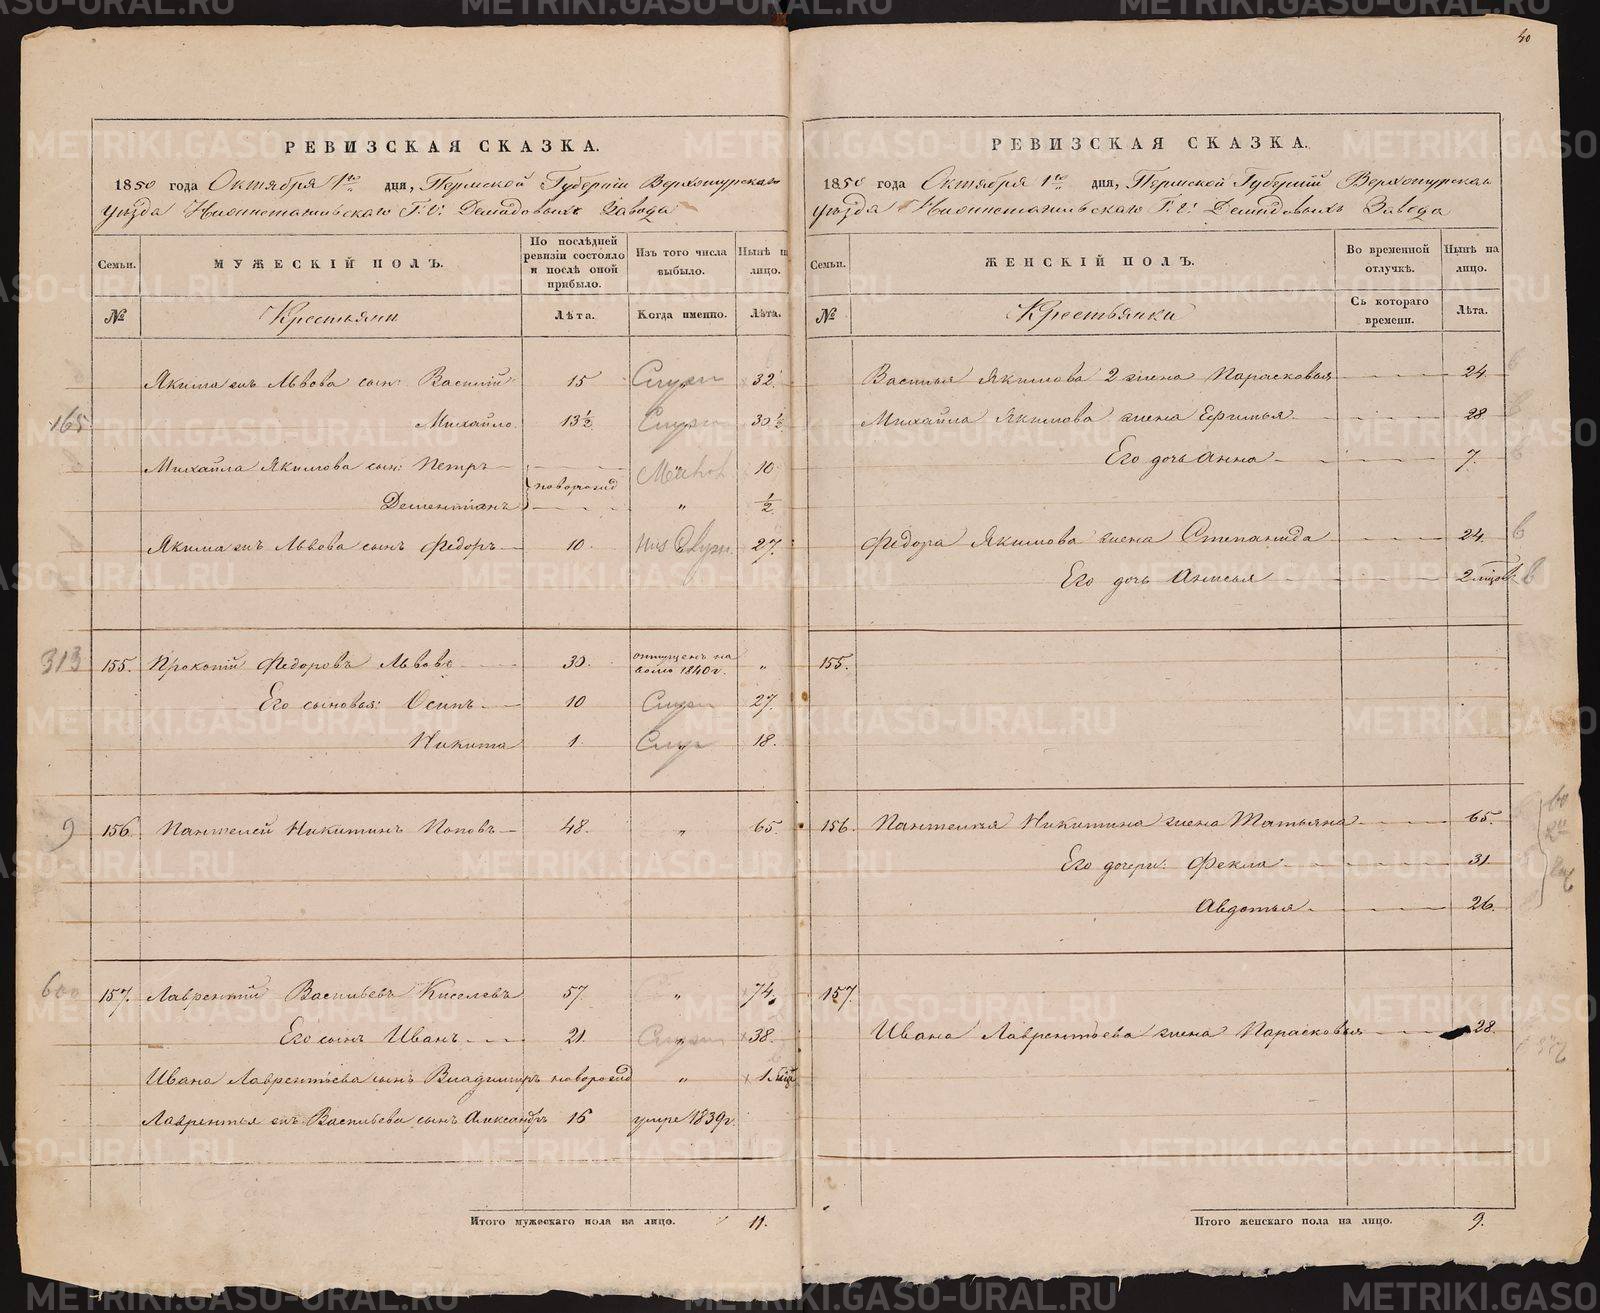 40
РЕВИЗСКАЯ СКАЗКА.
1850 года Октября 1го дня, Пермской Губернiи Верхотурскаго
уѣзда Нижнетагильскаго Г.г. Демидовыхъ Завода
Семьи. МУЖЕСКIЙ ПОЛЪ. По послѣдней ревизiи состояло и послѣ оной прибыло. Изъ того числа выбыло. Нынѣ на лицо.
№ Крестьяни Лѣта. Когда именно. Лѣта.
Якима жъ Львова сын: Василiй 15 Служ 32.
165 Михайло 13½ Служ 30½
Михайла Якимова сын: Петръ новорожд 10
Дементiанъ " ½
Якима жъ Львова сынъ Федоръ 10 27.
313 155. Прокопiй Федоровъ Львовъ 30. отпущенъ на волю 1840г. "
Его сыновья: Осипъ 10 Служ 27.
Никита 1. Служ 18.
9 156. Пантелей Никитинъ Поповъ 48. " 65.
600 157. Лаврентiй Васильевъ Киселевъ 57. " 74.
Его сынъ Иванъ 21. Служ 38.
Ивана Лаврентьева сынъ Владимiръ новорожд " 1.
Лаврентья жъ Васильева сынъ Александръ 16 умре 1839г.
Итого мужескаго пола на лицо. 11.
РЕВИЗСКАЯ СКАЗКА.
1850 года Октября 1го дня, Пермской Губернiи Верхотурскаго
уѣзда Нижнетагильскаго Г.г. Демидовыхъ Завода
Семьи. ЖЕНСКIЙ ПОЛЪ. Во временной отлучкѣ. Нынѣ на лицо.
№ Крестьянки Съ котораго времени. Лѣта.
Василья Якимова 2 жена Парасковья 24.
Михайла Якимова жена Ефимья 28
Его дочь Анна 7.
Федора Якимова жена Степанида 24.
Его дочь Анисья 2 мѣсяц
155.
156. Пантелея Никитина жена Татьяна 65.
Его дочери: Фекла 31.
Авдотья 26.
157.
Ивана Лаврентьева жена Парасковья 28.
Итого женскаго пола на лицо. 9.
METRIKI.GASO-URAL.RU